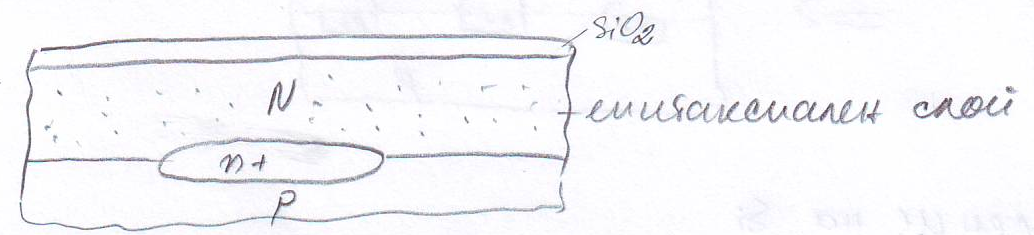 SiO2
N
епитаксиален слой
n+
P